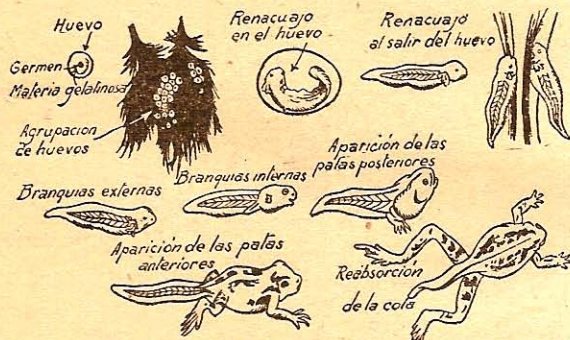 Huevo
Germen
Materia gelatinosa
Agrupacion
de huevos
Renacuajo
en el huevo
Renacuajo
al salir del huevo
Branquias externas
Branquias internas
Aparición de las
patas posteriores
Aparición de las patas
anteriores
Reabsorción
de la cola